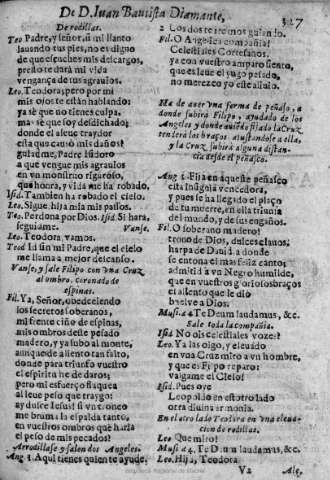 De D. Juan Bautista Diamante, 327
De rodillas.
Teo. Padre, y señor, si mi llanto
lauando tus pies, no es digno
de que escuches mis descargos,
preuẽ
vengança de tus agrauios.
Leo. Teodora, pero por mi
mis ojos te están hablando:
ya sè que no tienes culpa,
mas sè que soy desdichado;
donde el aleue traydor
està que causò mis daños?
guiadme, Padre Isidoro
à que vengue mis agrauios
en vn monstruo riguroso,
que honra, y vida me ha robado.
Isid. Tambien ha robado el cielo.
Leo. Sigue hija mia mis passos.
Teo. Perdona por Dios. Isid. Si hara,
seguidme. Vanse.
Leo. Teodora, vamos.
Teod. Id sin mi Padre, que el cielo
me llama a mejor descanso.
Vanse, y sale Filipo con vna Cruz
al ombro, coronado de
espinas.
Fil. Ya, Señor, obedeciendo
los secretos soberanos,
mi frente ciño de espinas,
mis ombros deste pesado
madero, y ya subo al monte,
aunque de aliento tan falto,
donde para triunfo vuestro
el espiritu he de daros;
pero mi esfuerço flaquea
al leue peso que traygo:
ay dulce Iesus! si vn tronco
me bruma la espalda tanto,
en vuestros ombros què haria
el peso de mis pecados?
Arrodillase y salen dos Angeles.
Ang. 1. Aqui tienes quien te ayude,
2 Los dos te iremos guiando.
Fil. O Angelica compañia!
Celestiales Cortesanos,
ya con vuestro amparo siento,
que es leue el yugo pesado,
no merezco yo este aliuio.
Ha de aver vna forma de peñasco, a
donde subirà Filipo, ayudado de los
Angeles y donde quede fixado la Cruz,
tenderà los braços ajustandose a ella,
y la Cruz subirà alguna distancia
desde el peñasco.
Ang. 1. Fixa en aqueste peñasco
esta insignia vencedora,
y pues te ha llegado el plaço
de tu muerte, en ella triunfa
del mundo, y de sus engaños.
Fil. O soberano madero!
trono de Dios, dulces clauos,
harpa de Dauid, a donde
se entona el mas feliz canto;
admitid à vn Negro humilde,
que en vuestros gloriosos braços
el aliento que le diò
buelve a Dios.
Musi. à 4. Te Deum laudamus, &c.
Sale toda la compañia.
Isid. No oìs celestiales vozes?
Leo. Ya las oigo, y eleuado
en vna Cruz miro a vn hombre,
y que es Filipo reparo:
valgame el Cielo!
Isid. Pues oye
Leopoldo en estotro lado
otra diuina armonia.
En el otro lado Teodora en vna eleuacion
de rodillas.
Leo. Que miro!
Musi. à 4. Te Deum laudamus, &c.
Leo. Hija, Teodora.
V2 Ale,